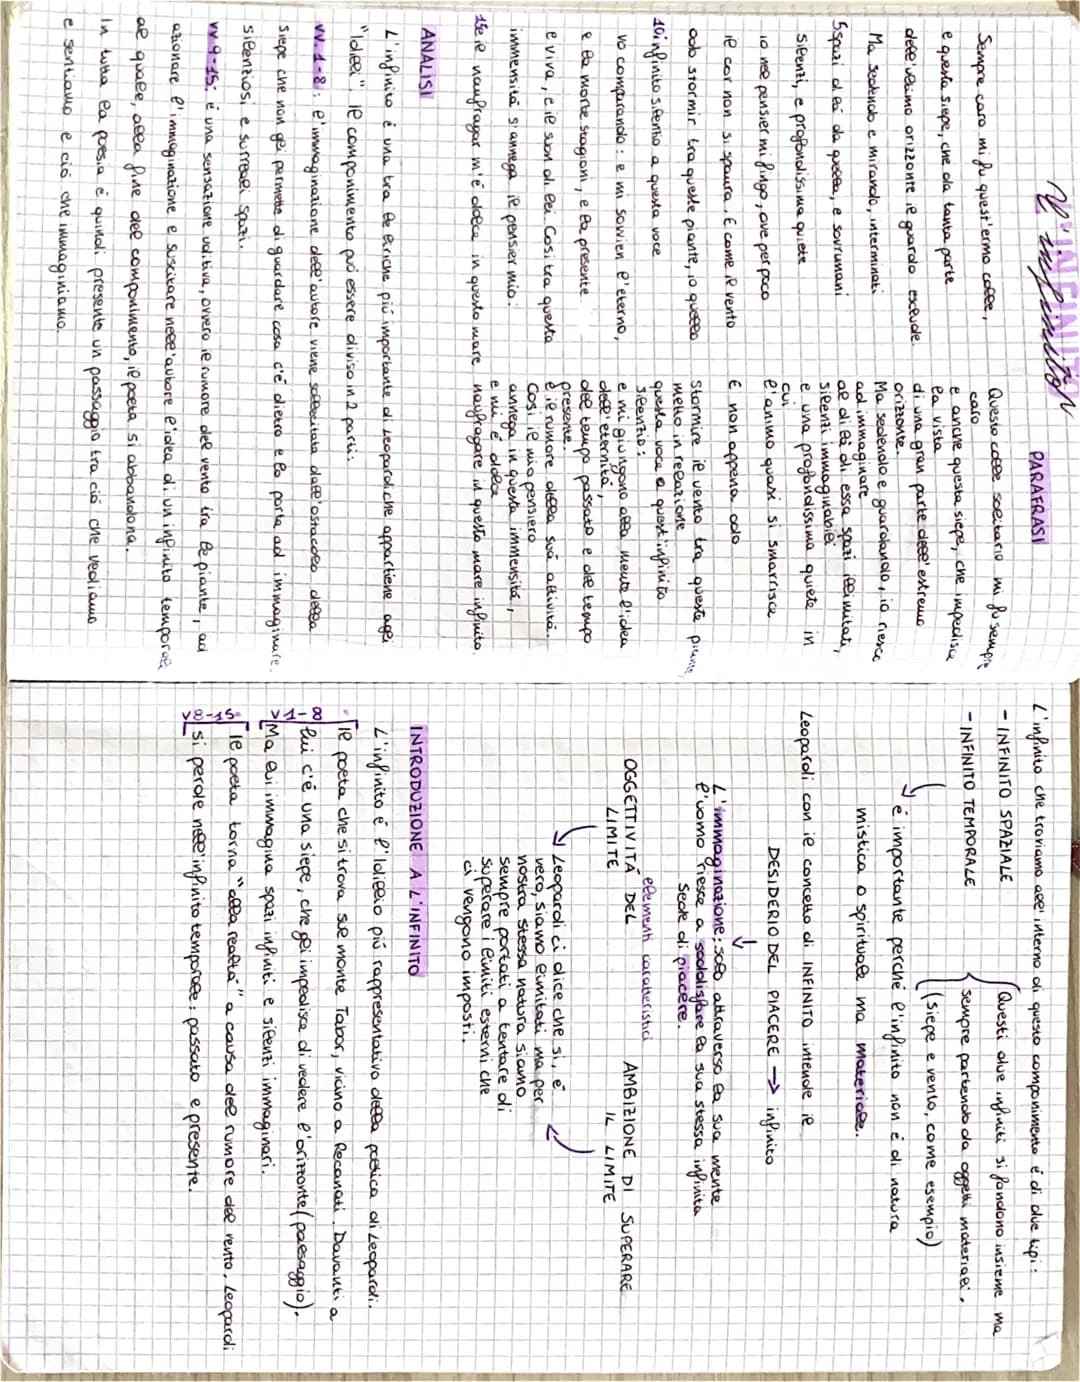 L'INFINITO
L'infinito
Sempre caro mi fu quest'ermo colle,
e questa siepe, che da tanta parte
dell'ultimo orizzonte il guardo esclude.
Ma sedendo e mirando, interminati
5 spazi di là da quella, e sovrumani
silenzi, e profondissima quiete
io nel pensier mi fingo, ove per poco
il cor non si spaura. E come il vento
odo stormir tra queste piante, io quello
10 infinito silenzio a questa voce
vo comparando: e mi sovvien l'eterno,
e la morte stagioni, e la presente
e viva, e il suon di lei. Così tra questa
immensità s'annega il pensier mio:
15 e il naufragar m'è dolce in questo mare
PARAFRASI
Questo colle solitario mi fu sempre
caro
e anche questa siepe, che impedisce
la vista
di una gran parte dell'estremo
orizzonte.
Ma sedendo e guardando, io riesco
ad immaginare
al di là di essa spazi illimitati,
silenzi immaginabili
e una profondissima quiete in
cui
l'animo quasi si smarrisce
E non appena odo
stormire il vento tra queste piante,
metto in relazione
questa voce a quest'infinito
silenzio:
e mi giungono alla mente l'idea
dell'eternità,
del tempo passato e del tempo
presente.
e il rumore della sua attività.
Così il mio pensiero
annega in questa immensità,
e mi è dolce
naufragare in questo mare infinito.
ANALISI
L'infinito è una tra le liriche più importante di Leopardi che appartiene agli
"Idilli". Il componimento può essere diviso in 2 parti:
vv. 1-8: l'immaginazione dell'autore viene sollecitata dall'ostacolo della
siepe che non gli permette di guardare cosa c'è dietro e lo porta ad immaginare.
silenziosi e surreali spazi.
vv 9-15: è una sensazione uditiva, ovvero il rumore del vento tra le piante, ad
azionare l'immaginazione e suscitare nell'autore l'idea di un infinito temporale
al quale, alla fine del componimento, il poeta si abbandona.
In tutta la poesia è quindi presente un passaggio tra ciò che vediamo
e sentiamo e ciò che immaginiamo.
L'infinito che troviamo all'interno di questo componimento è di due tipi:
- INFINITO SPAZIALE
- INFINITO TEMPORALE
Questi due infiniti si fondono insieme ma
sempre partendo da oggetti materiali.
(siepe e vento, come esempio)
è importante perché l'infinito non è di natura
mistica o spirituale ma materiale.
Leopardi con il concetto di INFINITO intende il
DESIDERIO DEL PIACERE → infinito
L'immaginazione: solo attraverso la sua mente
l'uomo riesce a soddisfare la sua stessa infinita
sede di piacere.
elementi caratteristici
OGGETTIVITÁ DEL
LIMITE
AMBIZIONE DI SUPERARE
IL LIMITE
Leopardi ci dice che si, é
vero, siamo limitati ma per
nostra stessa natura siamo
sempre portati a tentare di
superare i limiti esterni che
ci vengono imposti.
INTRODUZIONE A L'INFINITO
L'infinito é l'Idillio più rappresentativo della poetica di Leopardi.
Il poeta che si trova sul monte Tabor, vicino a Recanati. Davanti a
v1-8
lui c'é una siepe, che gli impedisce di vedere l'orizzonte (paesaggio).
Ma lui immagina spazi infiniti e silenzi immaginari.
Il poeta torna "alla realtà" a causa del rumore del vento. Leopardi
v8-15
si perde nell'infinito temporale: passato e presente.